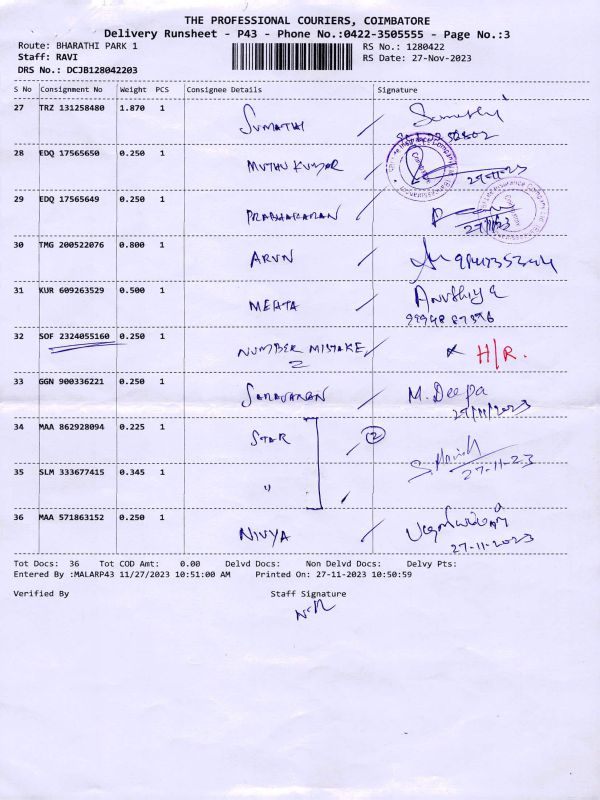 THE PROFESSIONAL COURIERS, COIMBATORE
Delivery Runsheet - P43 - Phone No.:0422-3505555 - Page No.:3
Route: BHARATHI PARK 1 RS No.: 1280422
Staff: RAVI RS Date: 27-Nov-2023
DRS No.: DCJB128042203
S No Consignment No Weight PCS Consignee Details Signature
27 TRZ 131258480 1.870 1 SUMATHI
28 EDQ 17565650 0.250 1 MUTHU KUMAR 27-11-23
29 EDQ 17565649 0.250 1 PRABHAKARAN 27/11/23
30 TMG 200522076 0.800 1 ARUN
31 KUR 609263529 0.500 1 MEHTA Anushiya
32 SOF 2324055160 0.250 1 NUMBER MISTAKE H/R.
33 GGN 900336221 0.250 1 SARAVANAN M. Deepa
27/11/2023
34 MAA 862928094 0.225 1 STAR 2
35 SLM 333677415 0.345 1 " 27-11-23
36 MAA 571863152 0.250 1 NIVYA
27-11-2023
Tot Docs: 36 Tot COD Amt: 0.00 Delvd Docs: Non Delvd Docs: Delvy Pts:
Entered By :MALARP43 11/27/2023 10:51:00 AM Printed On: 27-11-2023 10:50:59
Verified By Staff Signature